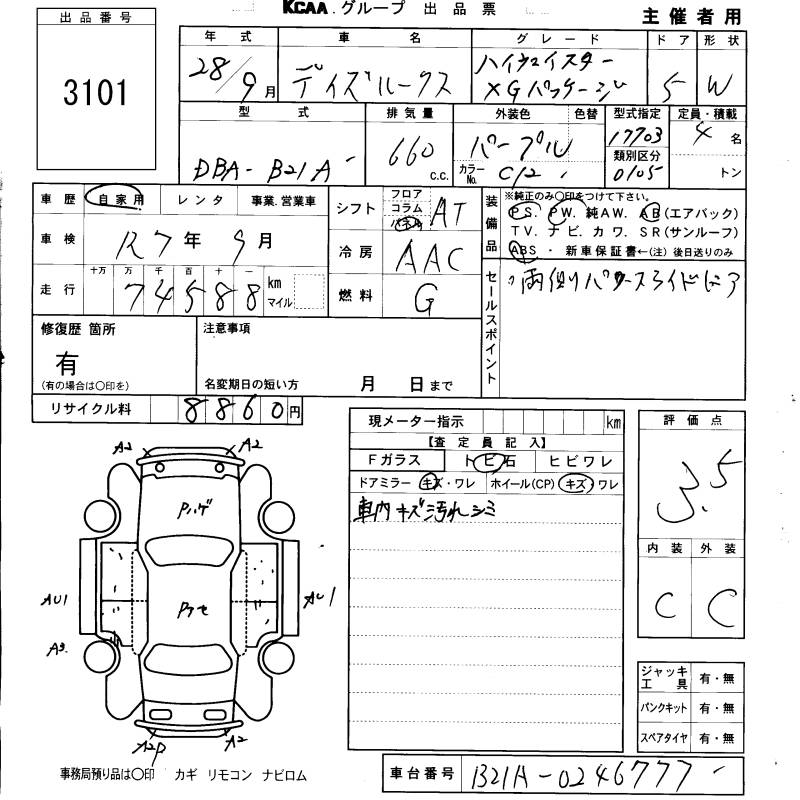 KCAA グループ 出品票
主催者用
出品番号
3101
年式 車名 グレード ドア 形状
28/9月 デイズルークス ハイウェイスター XGパッケージ 5 W
型式 排気量 外装色 色替 型式指定 定員・積載
DBA-B21A 660 c.c. パープル カラーNo. C12 17703 類別区分 0105 4名 トン
車歴 自家用 レンタ 事業.営業車
車検 R7年 9月
走行 十万 万 千 百 十 一 km マイル
74588
シフト フロア コラム パネル AT
冷房 AAC
燃料 G
装備品 ※純正のみ〇印をつけて下さい。
PS. PW. 純AW. AB(エアバック)
TV. ナビ. カワ. SR(サンルーフ)
ABS ・ 新車保証書←(注) 後日送りのみ
セールスポイント
両側パワースライドドア
修復歴 箇所
有
(有の場合は〇印を)
注意事項
名変期日の短い方 月 日まで
リサイクル料 8860円
現メーター指示 km
【査定員記入】
Fガラス トビ石 ヒビワレ
ドアミラー キズ・ワレ ホイール(CP) キズ・ワレ
車内キズ汚れシミ
評価点
3.5
内装 外装
C C
ジャッキ工具 有・無
パンクキット 有・無
スペアタイヤ 有・無
A2 A2
Pハゲ
AU1 Pアセ AU1
A3
A2P A2
事務局預り品は〇印 カギ リモコン ナビロム
車台番号 B21A-0246777